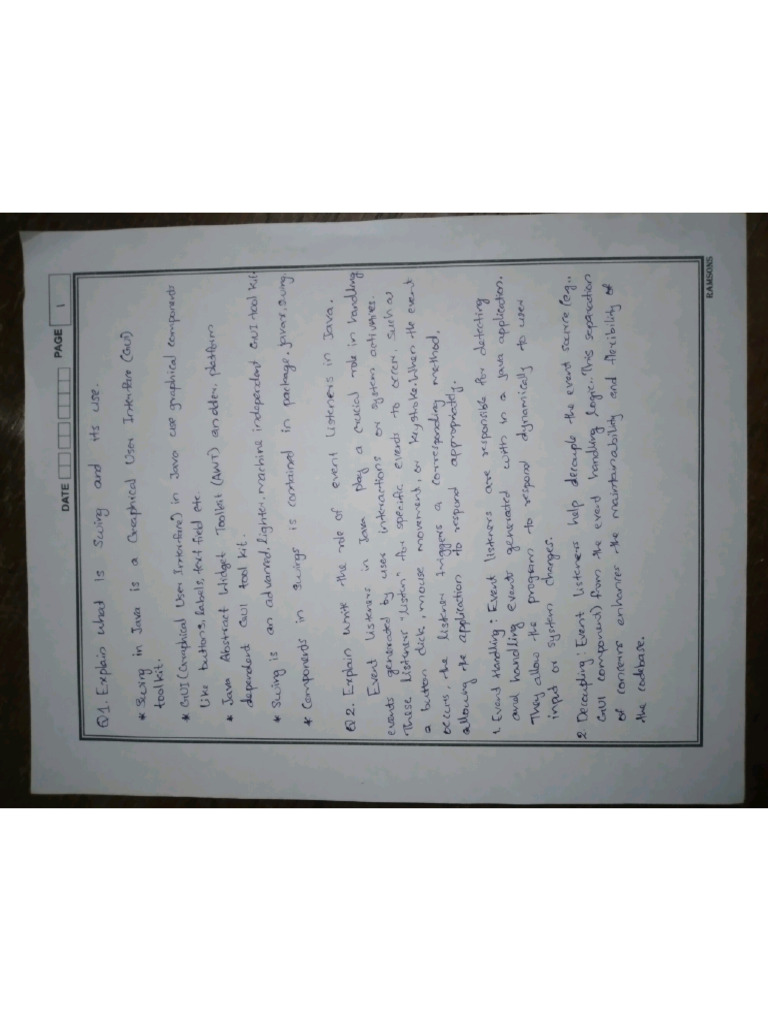 DATE
PAGE 1
Q1. Explain what is Swing and its use.
* Swing in Java is a Graphical User Interface (GUI)
toolkit.
* GUI (Graphical User Interface) in Java use graphical components
like buttons, labels, text field etc.
* Java Abstract Widget Toolkit (AWT) an older, platform
dependent GUI tool kit.
* Swing is an advanced, lighter, machine independent GUI tool kit
* Components in swings is contained in package, javax.swing.
Q2. Explain write the role of event listeners in Java.
Event listeners in Java play a crucial role in handling
events generated by user interactions or system activities.
These listeners "listen" for specific events to occur, such as
a button click, mouse movement, or keystroke. When the event
occurs, the listener triggers a corresponding method,
allowing the application to respond appropriately.
1. Event Handling: Event listeners are responsible for detecting
and handling events generated with in a Java application.
They allow the program to respond dynamically to user
input or system changes.
2. Decoupling: Event listeners help decouple the event source (eg.,
GUI component) from the event handling logic. This separation
of concerns enhances the maintainability and flexibility of
the codebase.
RAMSONS